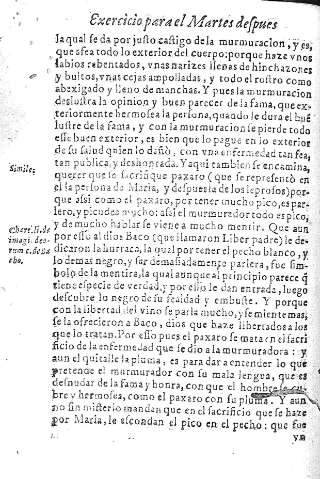 Exercicio para el Martes despues
la qual se da por justo castigo de la murmuracion, y es,
que afea todo lo exterior del cuerpo: porque haze vnos
labios rebentados, vnas narizes llenas de hinchazones
y buitos, vnas cejas ampolladas, y todo el rostro como
abexigado y lleno de manchas. Y pues la murmuracion
deslustra la opinion y buen parecer de la fama, que ex-
teriormente hermosea la persona, quando le dura el buē
lustre de la fama, y con la murmuracion se pierde todo
esse buen exterior, es bien que lo pague en lo exterior
de su salud quien lo dañò, con vna enfermedad tan fea,
tan publica, y deshonrada. Y aqui tambien se encamina,
Simile;
querer que se sacrifique paxaro (que se representò en
el la persona de Maria, y despues la de los leprosos) por-
que assi como el paxaro, por tener mucho pico, es par-
lero, y picudo mucho: assi el murmurador todo es pico,
y de mucho hablar se viene a mucho mentir. Que aun
por esso al dios Baco (que llamaron Liber padre) le de-
imagi. deo-
rum c. de Ba
cho.
dicaron la hurraca, la qual por tener el pecho blanco, y
lo demas negro, y ser demasiadamente parlera, fue sim-
bolo de la mentira, la qual aunque al principio parece q̃
tiene especie de verdad, y por esso le dan entrada, luego
descubre lo negro de su fealdad y embuste. Y porque
con la libertad del vino se parla mucho, y se miente mas,
se la ofrecieron a Baco, dios que haze libertados a los
que lo tratan. Por esso pues el paxaro se mata en el sacri
ficio de la enfermedad que se dio a la murmuradora: y
aun el quitalle la pluma, es para dar a entender lo que
pretende el murmurador con su mala lengua, que es
desnudar de la fama y honra, con que el hombre se cu-
bre y hermosea, como el paxaro con su pluma. Y aun
no sin misterio mandan que en el sacrificio que se haze
por Maria, le escondan el pico en el pecho: que fue
vn